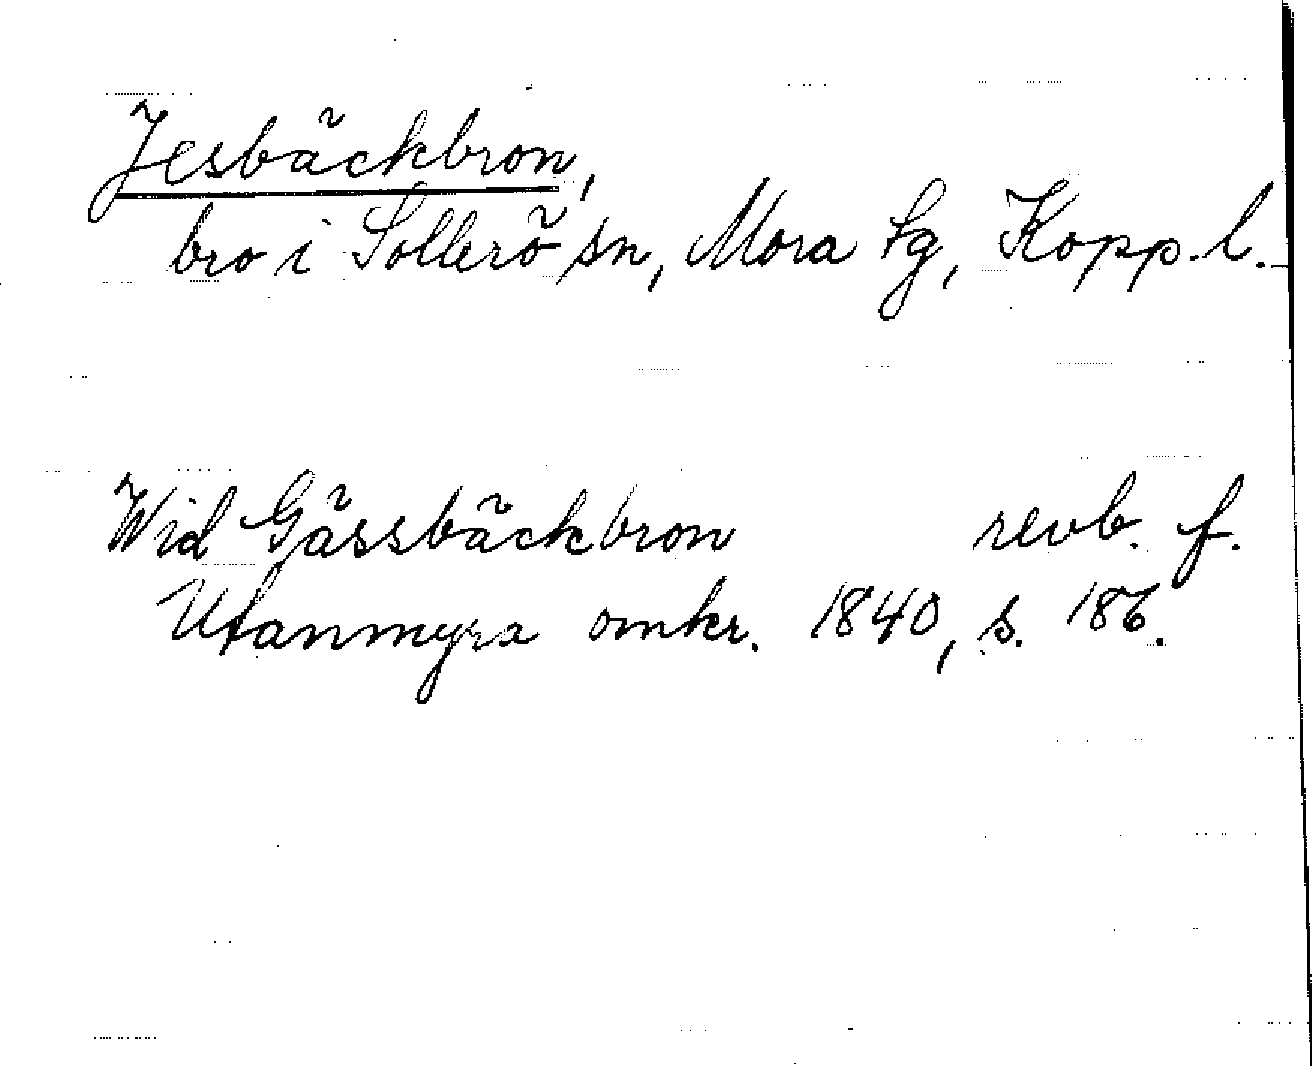 Jesbäckbron,
bro i Sollerö sn, Mora tg, Kopp. l.
Wid Gässbäckbron revb. f.
Utanmyra omkr. 1840, s. 186.